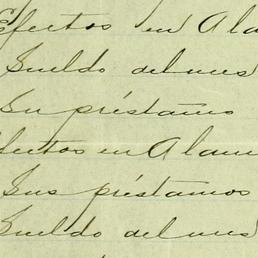 Efectos en Ala
Sueldo del mes
Su préstamo
fectos en Alam
Sus préstamos
Sueldo del mes